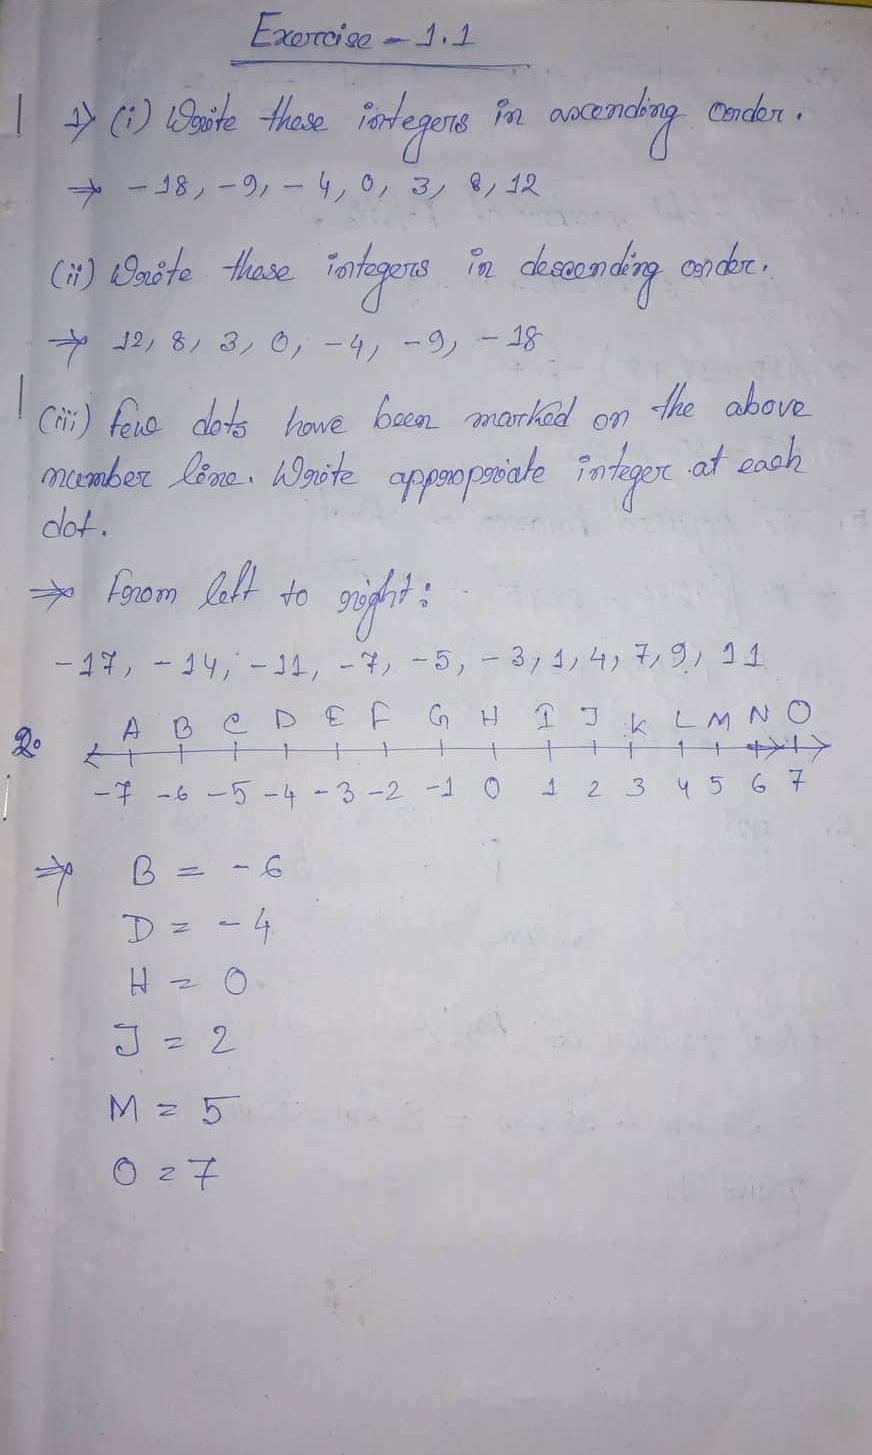 Exercise - 1.1
1) (i) Write these integers in ascending order.
⇒ -18, -9, -4, 0, 3, 8, 12
(ii) Write these integers in descending order.
⇒ 12, 8, 3, 0, -4, -9, -18
(iii) Few dots have been marked on the above
number line. Write appropriate integer at each
dot.
⇒ From left to right:
-17, -14, -11, -7, -5, -3, 1, 4, 7, 9, 11
A B C D E F G H I J K L M N O
2.
-7 -6 -5 -4 -3 -2 -1 0 1 2 3 4 5 6 7
⇒ B = -6
D = -4
H = 0
J = 2
M = 5
O = 7